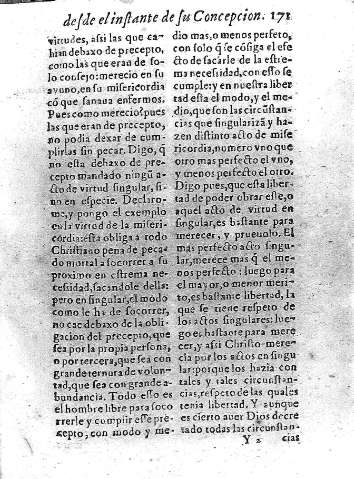 desde el instante de su Concepcion. 171
virtudes, assi las que ca-
hian debaxo de precepto,
como las que eran de so-
lo consejo: merecio en su
ayuno, en su misericordia
cō que sanaua enfermos.
Pues como merecio? pues
las que eran de precepto,
no podia dexar de cum-
plirlas sin pecar. Digo, q̃
no esta debaxo de pre-
cepto mandado ningū a-
cto de virtud singular, si-
no en especie. Declaro-
me, y pongo el exemplo
en la virtud de la miseri-
cordia: esta obliga a todo
Christiano pena de peca-
do mortal a socorrer a su
proximo en estrema ne-
cessidad, sacandole della:
pero en singular, el modo
como le ha de socorrer,
no cae debaxo de la obli-
gacion del precepto, que
sea por la propia persona,
o por tercera, que sea con
grande ternura de volun-
tad, que sea con grande a-
bundancia. Todo esso es
el hombre libre para soco
rrerle y cumplir esse pre-
cepto, con modo y me-
dio mas, o menos perfeto,
con solo q̃ se cōsiga el efe
cto de sacarle de la estre-
ma necessidad, con esso se
cumple: y en nuestra liber
tad esta el modo, y el me-
dio, que son las circūstan-
cias que singulariză y ha-
zen distinto acto de mise
ricordia, numero vno que
otro mas perfecto el vno,
y menos perfecto el otro.
Digo pues, que esta liber-
tad de poder obrar este, o
aquel acto de virtud en
singular, es bastante para
merecer, y prueuolo. El
mas perfecto acto singu-
lar, merece mas q̃ el me-
nos perfecto: luego para
el mayor, o menor meri-
to, es bastante libertad, la
que se tiene respeto de
los actos singulares: lue-
go es bastante para mere
cer, y assi Christo mere-
cia por los actos en singu
lar: porque los hazia con
tales y tales circunstan-
cias, respeto de las quales
tenia libertad. Y aunque
es cierto auer Dios decre
tado todas las circunstan-
Y 2 cias